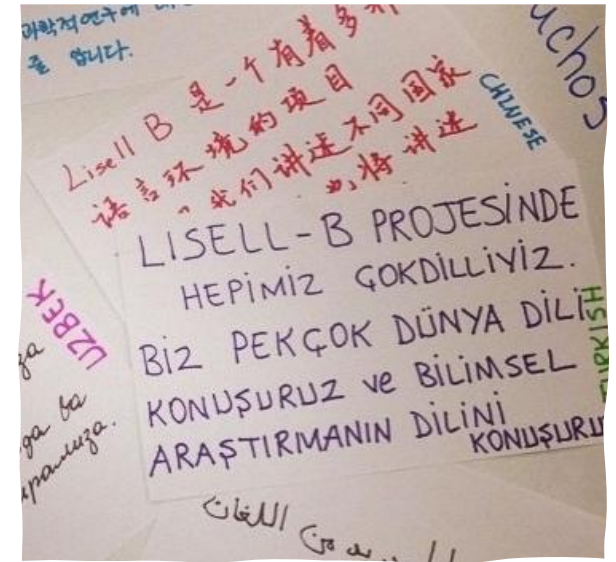 과학적연구에
줄 압니다.
uchos
Lisell B 是一个有着多
语言环境的项目
我们讲述不同国家
也将讲述
CHINESE
LISELL-B PROJESİNDE
HEPİMİZ ÇOKDİLLİYİZ.
BİZ PEKÇOK DÜNYA DİLİ
KONUŞURUZ ve BİLİMSEL
ARAŞTIRMANIN DİLİNİ
KONUŞURU
TURKISH
UZBEK
za
ga ba
الـعديد من اللغات